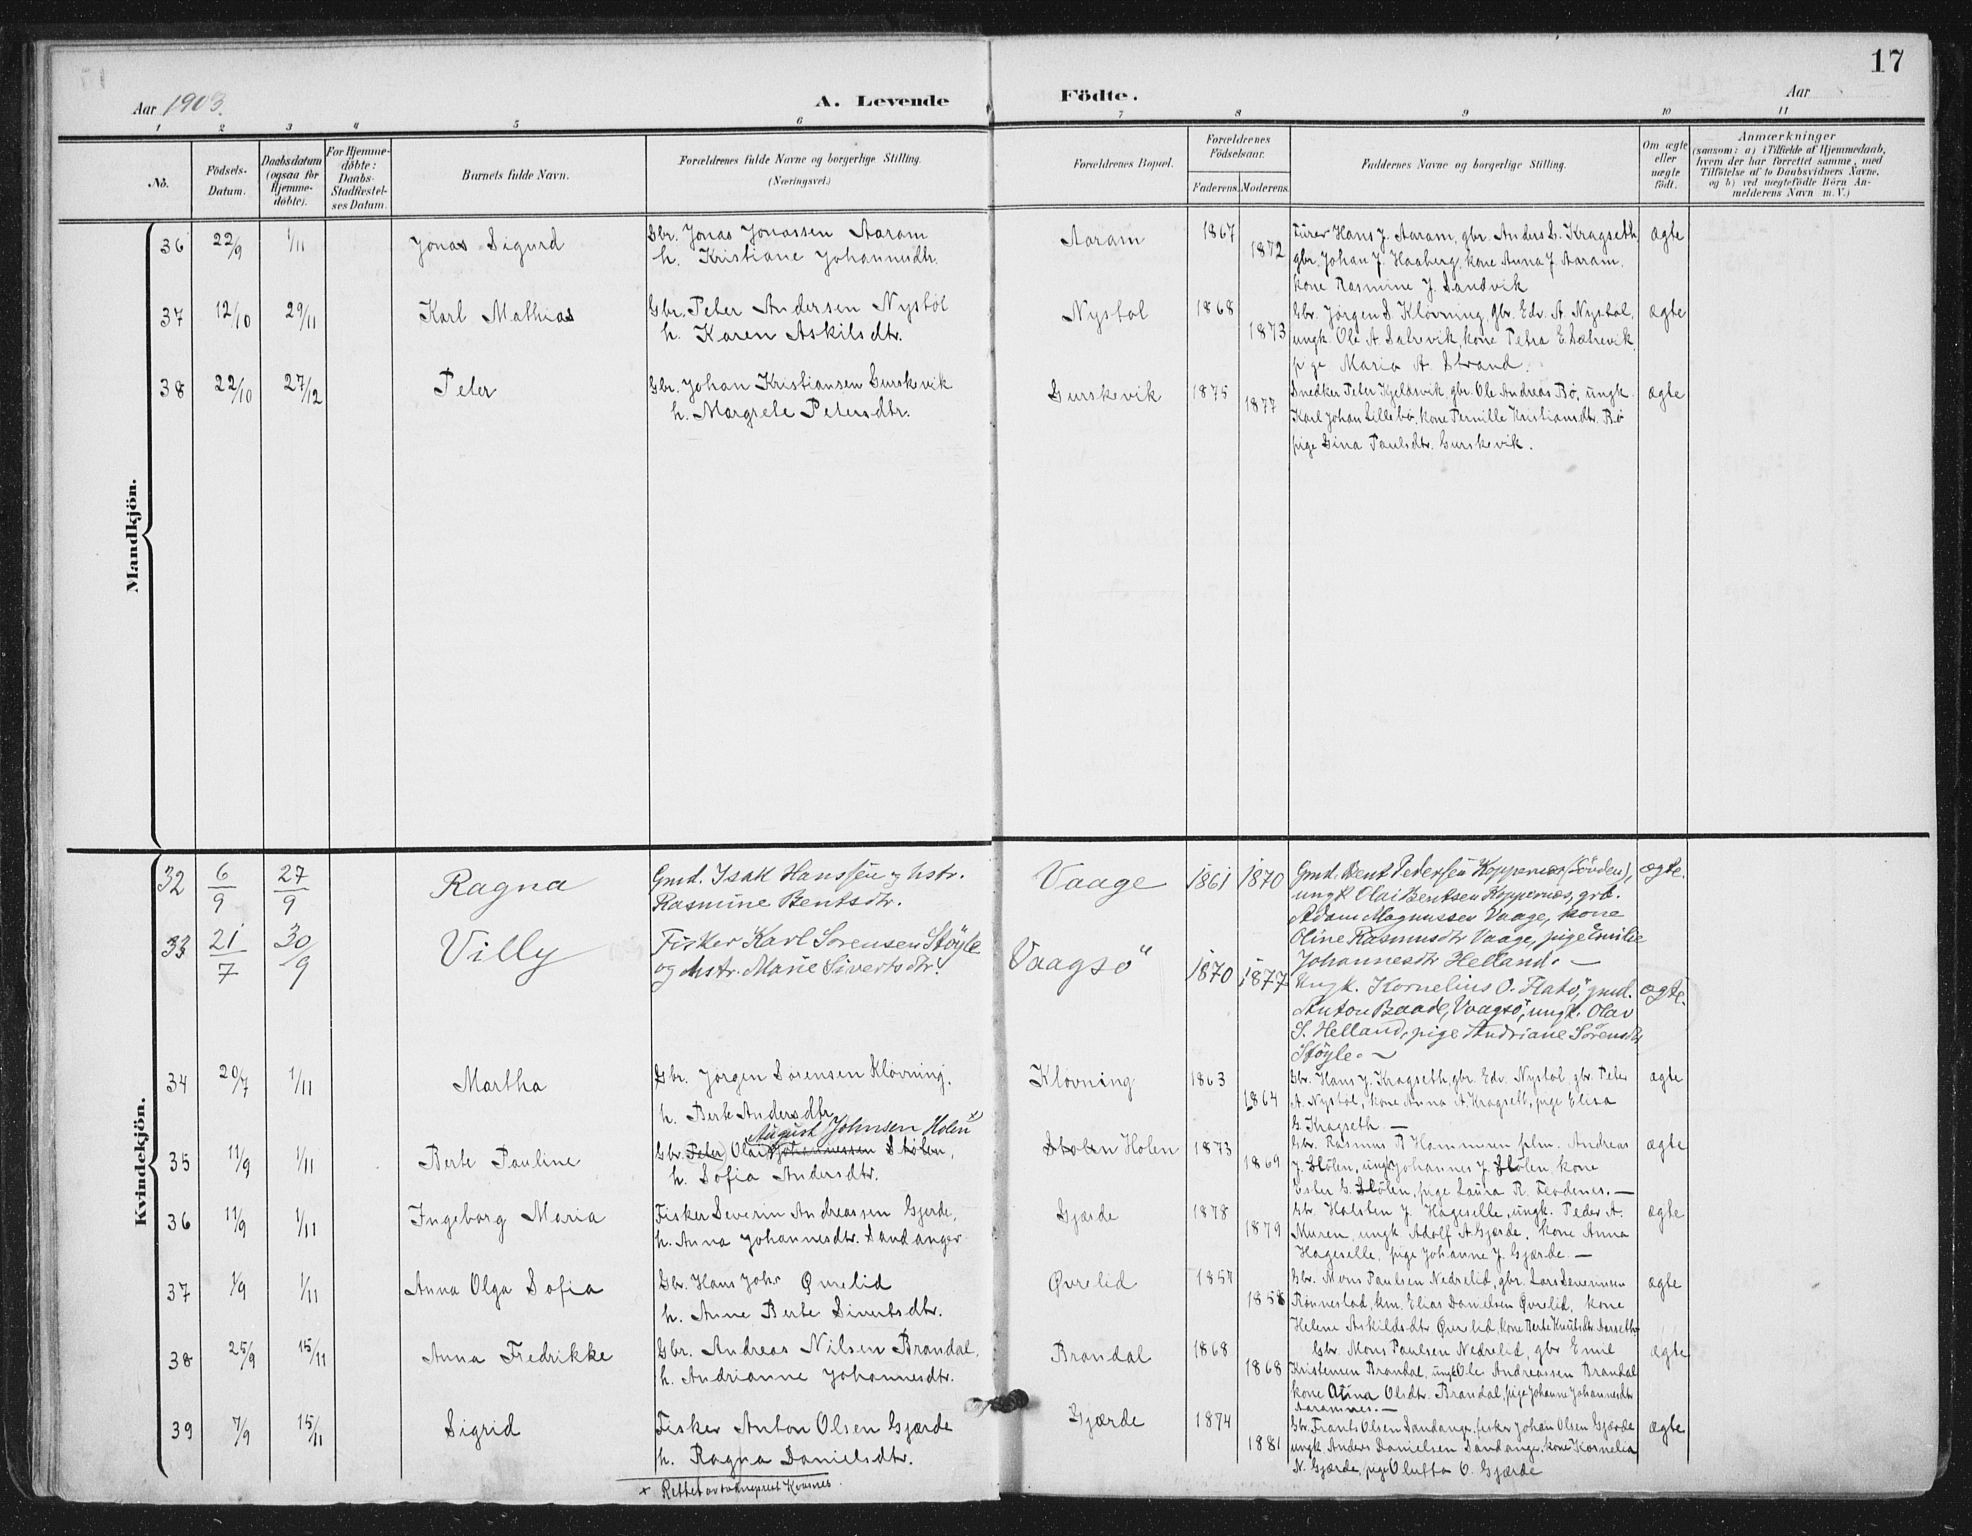 17
Aar 1903.
A. Levende
Födte.
Aar
1 2 3 4 5 6 7 8 9 10 11
No.
Födsels-
Datum.
Daabsdatum
(ogsaa for
Hjemme-
döbte).
For Hjemme-
döbte:
Daabs-
Stadfæstel-
ses Datum.
Barnets fulde Navn.
Forældrenes fulde Navne og borgerlige Stilling.
(Næringsvei.)
Forældrenes Bopæl.
Forældrenes
Födselsaar.
Faderens.
Moderens.
Faddernes Navne og borgerlige Stilling.
Om ægte
eller
uægte
födt.
Anmærkninger
(saasom: a) i Tilfælde af Hjemmedaab,
hvem der har forrettet samme, med
Tilföielse af to Daabsvidners Navne,
og b) ved uægtefödte Börn An-
melderens Navn m. V.)
Mandkjön.
36 22/9 1/11 Jonas Sigurd
Gbr. Jonas Jonassen Aaram
h. Kristiane Johannesdtr.
Aaram 1867 1872
Hans J. Aaram, gbr. Anders S. Kragseth,
gbr. Johan J. Haaberg, kone Anna J. Aaram.
kone Rasmine J. Sandvik
ægte
37 12/10 29/11 Karl Mathias
Gbr. Peter Andersen Nystöl
h. Karen Askilsdtr.
Nystøl 1868 1873
Gbr. Jørgen S Kløvning, gbr. Edv. A. Nystøl,
ungk. Ole A. Salrevik, kone Petra E. Salrevik
pige Maria A. Strand.
ægte
38 22/10 27/12 Peter
Gbr. Johan Kristiansen Gurskevik
h. Margrete Petersdtr.
Gurskevik 1875 1877
Snedker Peter Kjeldsvik, gbr. Ole Andreas Bø, ungk.
Karl Johan Lillebø, kone Pernille Kristiansdtr. Bø
pige Gina Paulsdtr. Gurskevik.
ægte
Kvindekjön.
32 6/9 27/9 Ragna
Gmd. Isak Hanssen og hstr.
Rasmine Bentsdtr.
Vaage 1861 1870
Gmd. Bent Pedersen Koppernæs (Sövden),
ungk Olai Bentsen Koppernæs, grb.
Adam Magnussen Vaage, kone
Oline Rasmusdtr Vaage, pige Emilie
Johannesdtr Helland. –
ægte.
33 21/7 30/9 Villy
Fisker Karl Sorensen Støyle
og hstr. Marie Sivertsdtr.
Vaagsö 1870 1877
Ungk. Kornelius O. Flatö, gmd.
Anton Baade, Vaagsö, ungk. Olav
S. Helland, pige Andriane Sörensdtr
Støyle. –
ægte.
34 20/7 1/11 Martha
Gbr. Jørgen Sørensen Kløvning.
h. Berte Andersdtr
Kløvning 1863 1864
Gbr. Hans J. Kragseth, gbr. Edv. Nystøl, gbr. Peter
A. Nystøl, kone Anna A. Kragseth, pige Elisa
G. Kragseth –
ægte
35 11/9 1/11 Berte Pauline
August Johnsen Holen x)
Gbr. Peter Olai Johannessen Stolen,
h. Sofia Andersdtr.
Stolen Holen 1873 1869
Gbr. Rasmus R Hammeren, Andreas
J. Stölen, ungk. Johannes J. Stölen, kone
Ester G. Stölen, pige Laura R. –
ægte
36 11/9 1/11 Ingeborg Maria
Fisker Severin Andreassen Gjerde,
h. Anna Johannesdtr. Sandanger
Gjærde 1878 1879
Gbr. Holsten J. Hageselle, ungk. Peder A.
Muren, ungk Adolf A. Gjærde, kone Anna
Hageselle, pige Johanne J. Gjærde –
ægte
37 1/9 1/11 Anna Olga Sofia
Gbr. Hans Johs Øvrelid
h. Anne Berte Sivertsdtr.
Øvrelid 1857 1858
Gbr. Mons Paulsen Nedrelid, gbr. Lars Severinsen
Rønnestad, km. Elias Danielsen Øvrelid, kone
Helene Askildsdtr Øvrelid, kone Berte Knutsdtr Aarseth
ægte
38 25/9 15/11 Anna Fredrikke
Gbr. Andreas Nilsen Brandal,
h. Andrianne Johannesdtr.
Brandal 1868 1868
Gbr. Mons Paulsen Nedrelid, gbr Emil
Kristensen Brandal, ungk Ole Andreassen Brandal
kone Olina Olsdtr. Brandal, pige Johanne Johannesdtr
Aaramnes. –
ægte
39 7/9 15/11 Sigrid
Fisker Anton Olsen Gjærde
h. Ragna Danielsdtr.
Gjærde 1874 1881
Gbr. Frants Olsen Sandanger, fisker Johan Olsen Gjærde
ungk Anders Danielsen Sandanger, kone Kornelia
N. Gjærde, pige Oluffa O. Gjærde
ægte
x Rettet av sokneprest Kvasnes